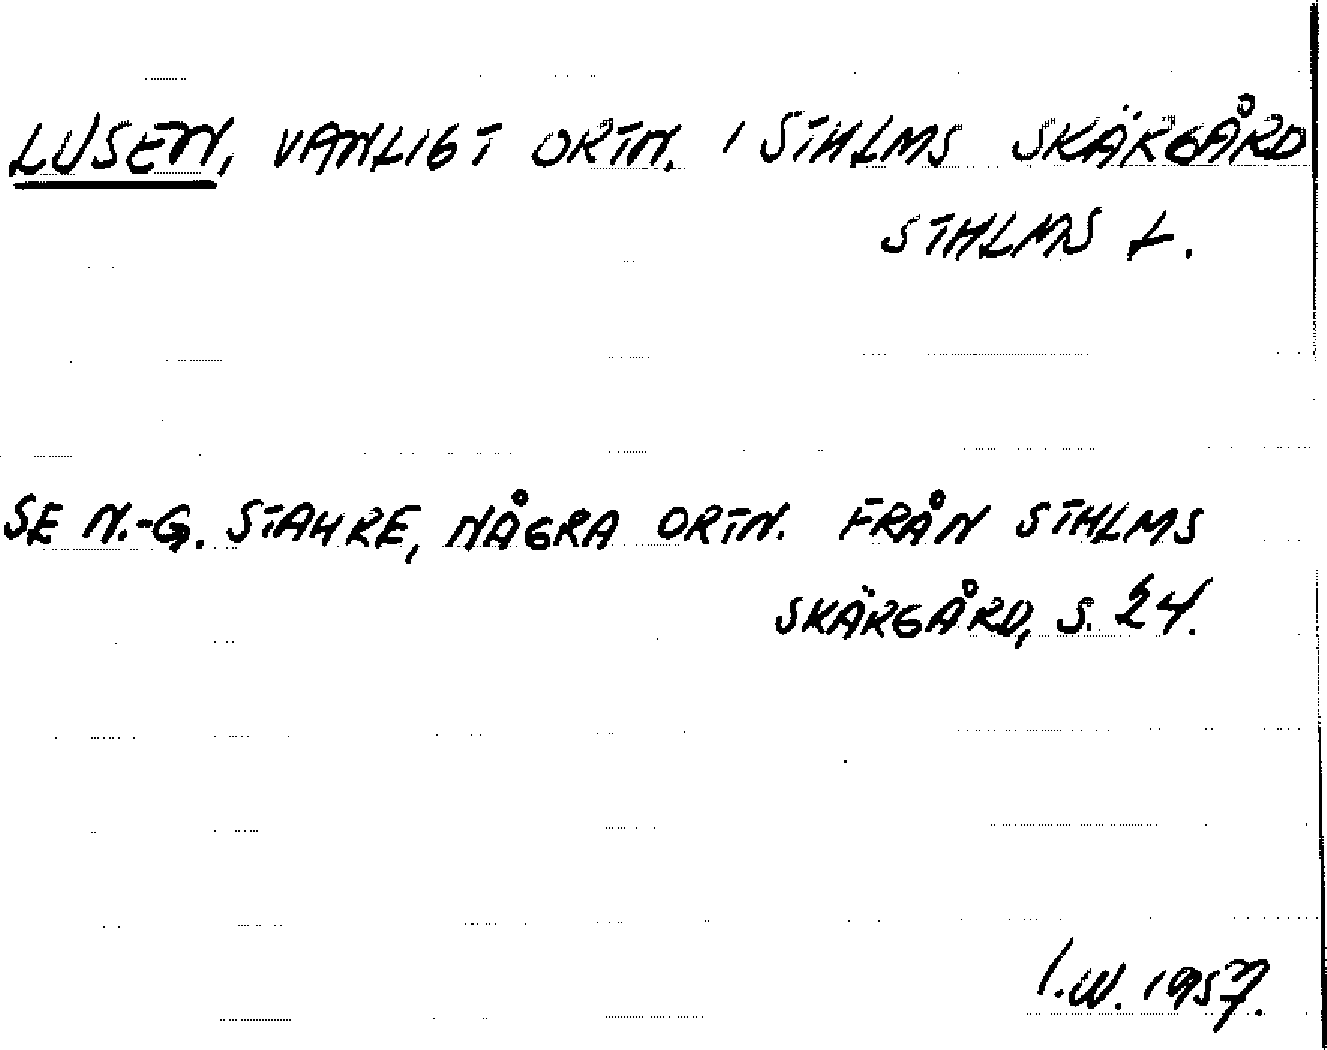 LUSEN, VANLIGT ORTN. I STHLMS SKÄRGÅRD
STHLMS L.
SE N.-G. STAHRE, NÅGRA ORTN. FRÅN STHLMS
SKÄRGÅRD, S. 24.
I.W. 1957.